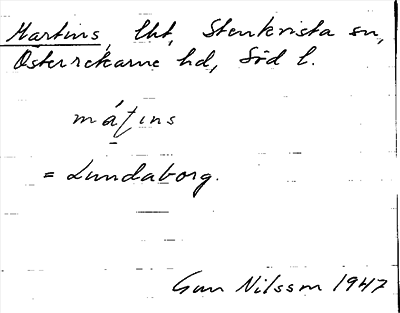 Martins, lht, Stenkvista sn,
Österrekarne hd, Söd l.
máʈins
= Lundaborg.
Gun Nilsson 1947